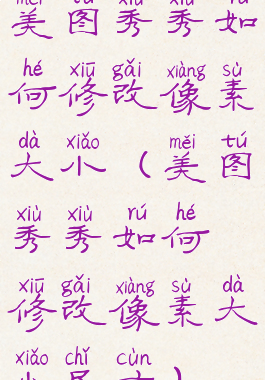 měi tú xiù xiù rú
美图秀秀如
hé xiū gǎi xiàng sù
何修改像素
dà xiǎo měi tú
大小（美图
xiù xiù rú hé
秀秀如何
xiū gǎi xiàng sù dà
修改像素大
xiǎo chǐ cùn
小尺寸）